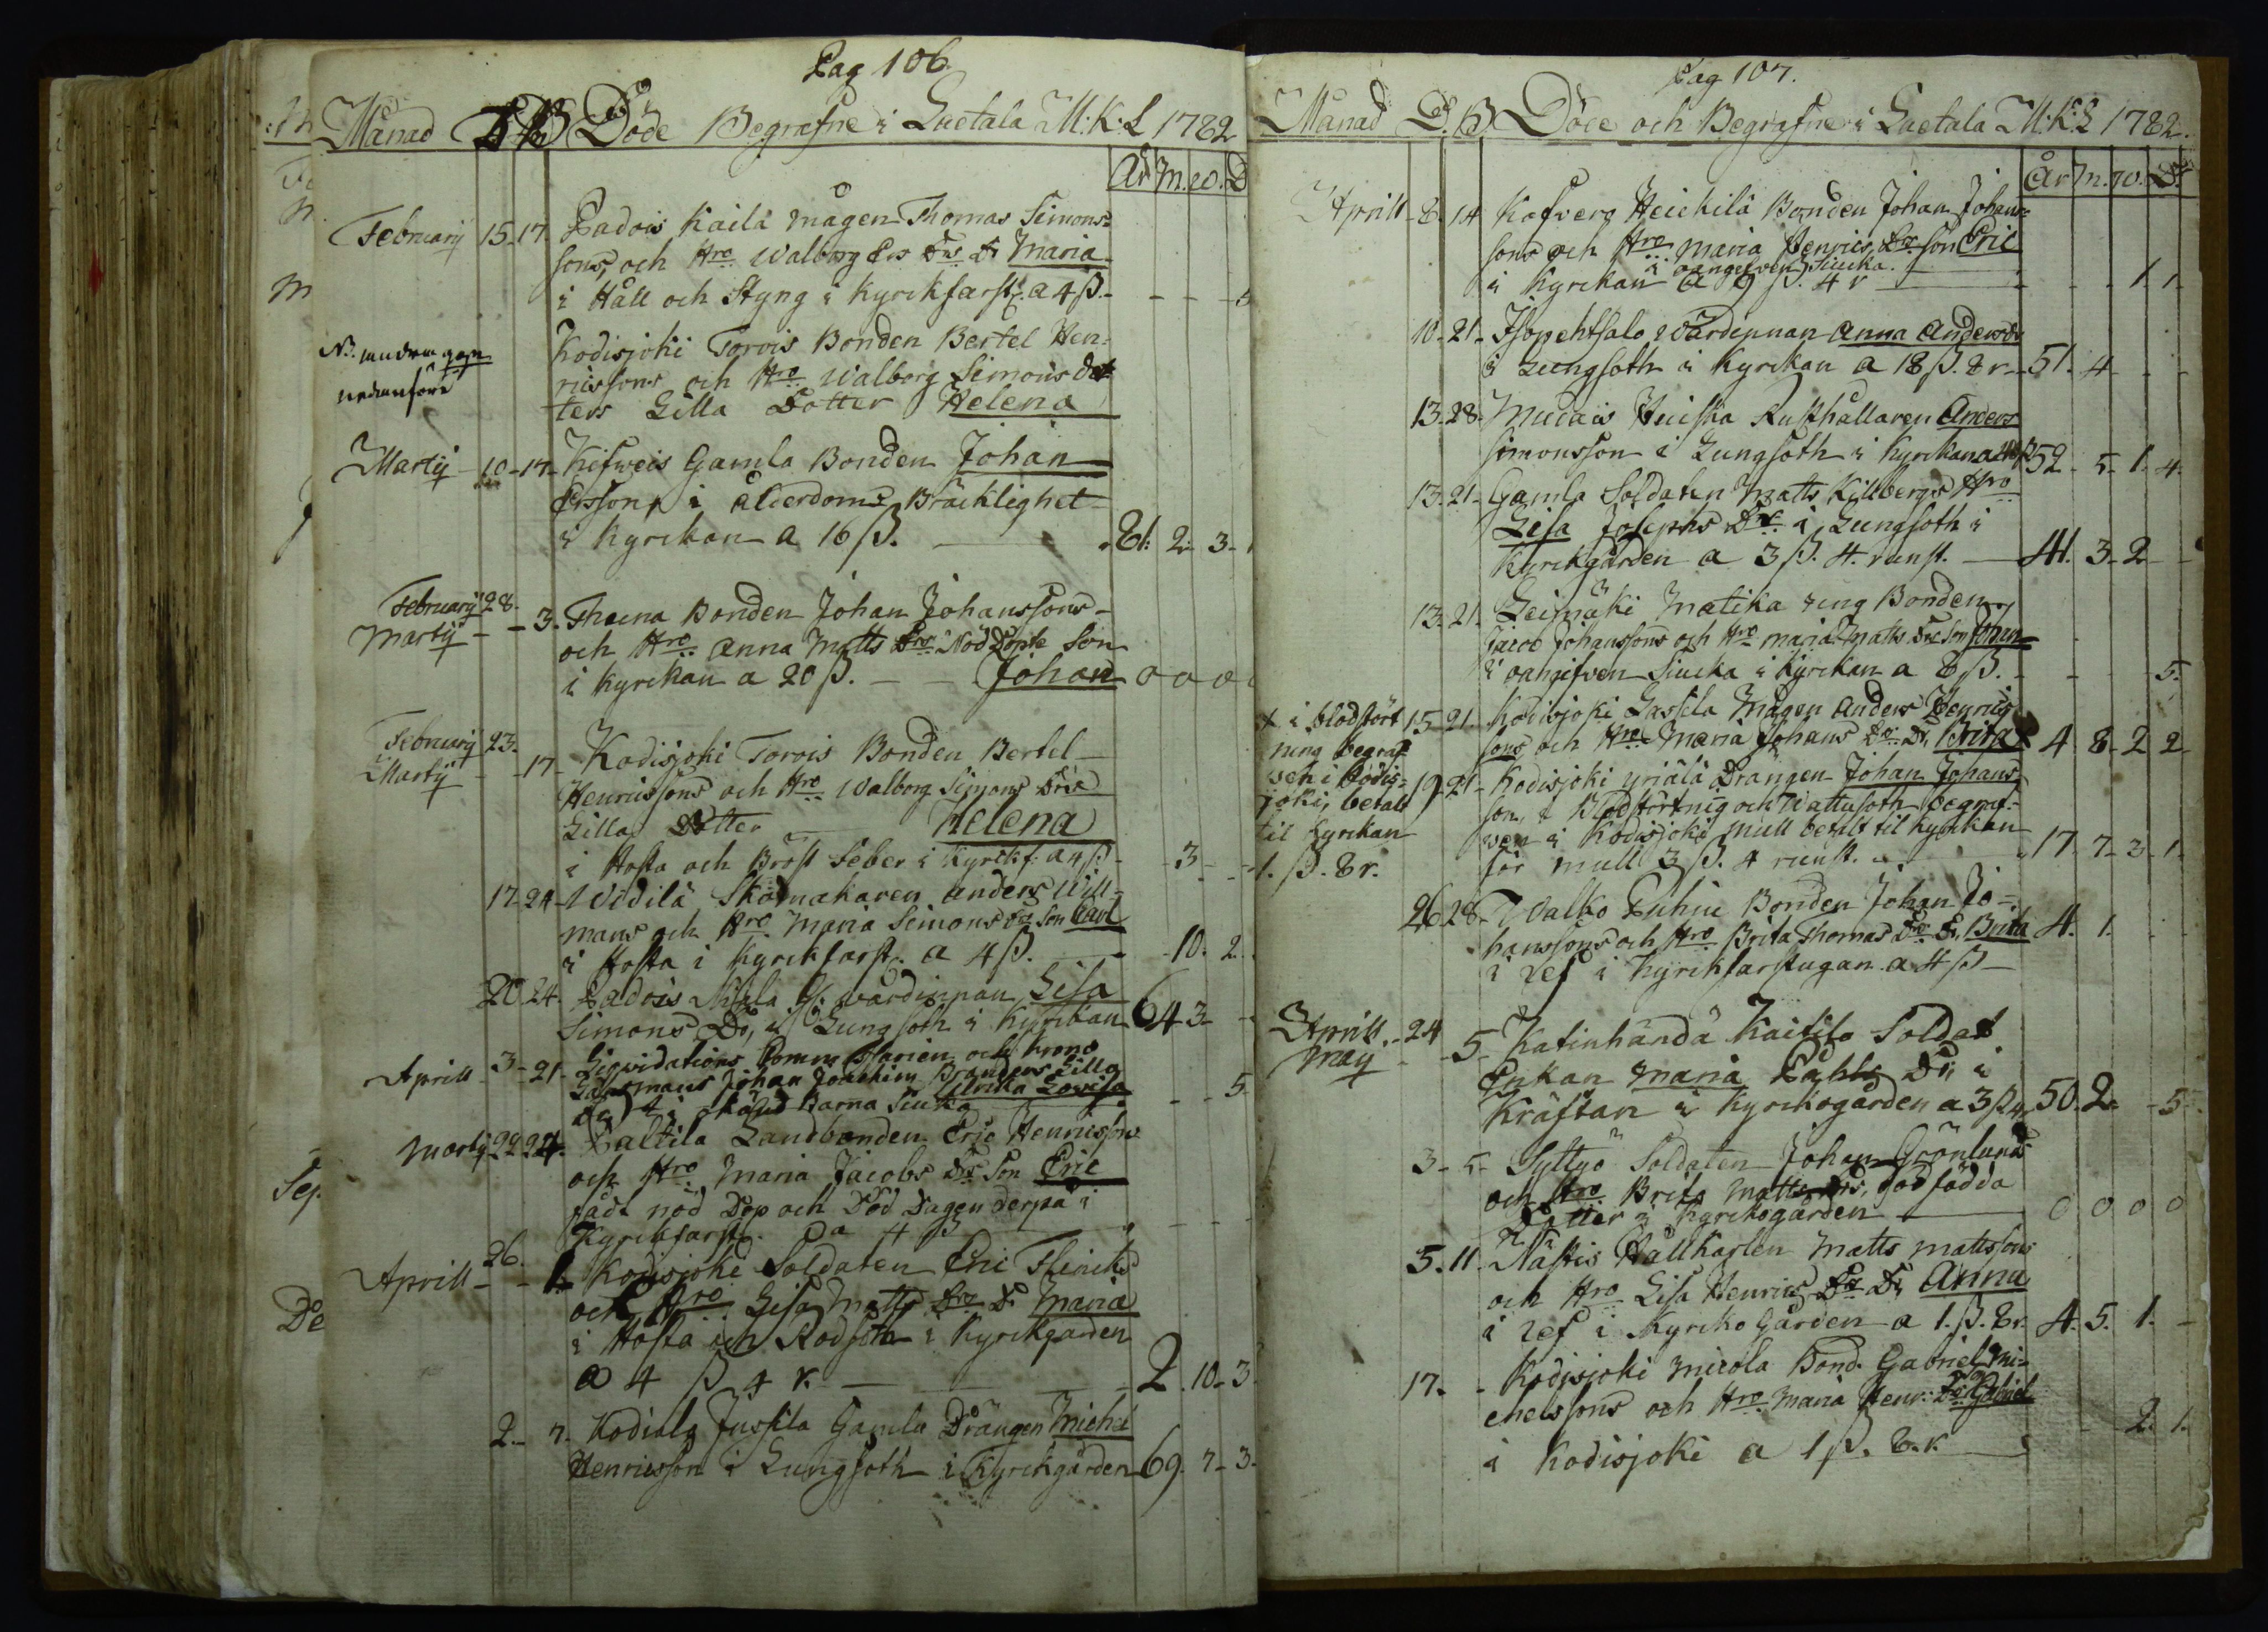 Pag 106
Månad D B Döde Begrafne i Laetala M:K:L 1782
År M. W. D
February 15. 17. Padois Kaila mågen Thomas Simons-
sons, och Hro Walborg Ers Drs Dr Maria
i Håll och Styng i Kyrckfarst. a 4 ß.
Kodisjoki Torvis Bonden Bertel Hen-
N. andra gån
ricssons och Hro Walborg Simons dot-
nedanföre
ters Lilla Dotter Helena
Martij 10-17. Kifweis Gamla Bonden Johan
Ersson, i ålderdoms Bräcklighet
i Kyrckan a 16 ß. 81. 2. 3.
February 28.
Martij 3. Bonden Johan Johanssons
och Hro Anna Matts Drs Nöd Döpte Son
i Kyrckan a 20 ß. Johan 0 0 0
February 23.
Martij 17. Kodisjoki Torvis Bonden Bertel
Henricssons och Hro Walborg Simons Drs
Lilla Dotter Helena
i Hosta och Bröst Feber i Kyrckf: a 4 ß 3.
17-24. Widilä Skomakaren Anders Will-
mans och Hro Maria Simons Drs Son Carl
i Hosta i Kyrckfarst. a 4 ß. 10. 2.
20. 24. Padois G: wärdinnan Lisa
Simons Dr, i Lungsoth i Kyrckan 64 3
Aprill 3-21. Liqvidations Commissarien och Krono
Länsmans Johan Joachim Branders Lilla
Ulrika Lovisa
i okänd Barna Siuka 5
Martij 22 24. Laltila Landbonden Eric Henricssons
och Hro Maria Jacobs Drs Son Eric
fådt nöd Dop och Död Dagen derpå i
Kyrckfarst. a 4 ß
26.
Aprill 1. Kodisjoki Soldaten Eric Flincks
och Hro Lisa Matts Drs Dr Maria
i Hosta och Rödsoth i Kyrckgården
a 4 ß 4 r. 2. 10. 3
2. 7. Kodiala Jussila Gamla Drängen Michel
Henricsson i Lungsoth i Kyrckgården 69. 7. 3.
Pag 107.
Månad D. B. Döde och Begrafne i Laetala M:K:L 1782.
År M. W. D.
Aprill 8. 14 Kafvero Heickilä Bonden Johan Johans-
sons och Hro Maria Henrics Drs Son Eric
i oangifven Siucka
i Kyrckan a 9 ß. 4 r 1 1.
10. 21. wärdinnan Anna Andersdr
i Lungsoth i Kyrckan a 18 ß. 8 r. 51. 4
13. 28. Rusthållaren Anders
Simonsson i Lungsoth i Kyrckan 52. 5. 1. 4.
13. 21. Gamla Soldaten Matts Killbergs Hro
Lisa Josephs Dr. i Lungsoth i
Kyrckgården a 3 ß. 4. runst. 41. 3. 2
13. 21. Leinmäki Matika ung Bonden
Jacob Johanssons och Hro Maria Matts Drs Son Johan
i oangifven Siucka i Kyrckan a 8 ß. 5.
x i blodstört 15 21. Kodisjoki Lassila Mågen Anders Henrics
ning begraf- sons och Hro Maria Johans Drs Dr, Brita x 4 8. 2 2
ven i Kodis- 19 21. Kodisjoki Yriälä Drängen Johan Johans-
joki, betalt son, i Blodstörtnig och Wattusoth begraf-
til Kyrckan ven i Kodisjoki Mull betalt til Kyrckan
1. ß. 8 r. för mull 3 ß. 4 runst. 17. 7. 3. 1.
26 28. Walko Puhiu Bonden Johan Jo-
hanssons och Hro Brita Thomas Drs Dr, Brita 4. 1.
i ref i Kyrckfarstugan a 4 ß
Aprill 24
May 5. Katinhändä Kaitila Soldat
Enkan Maria Pahls Dr, i
Kräftan i Kyrckogården a 3 ß 4 r 50. 2. 5
3. 5. Syttyö Soldaten Johan Grönlunds
och Hro Brita Matts drs, dödfödda
Dotter i Kyrckogården 0 0 0 0
5. 11. Nästis Hållkarlen Matts Mattssons
och Hro Lisa Henrics Drs Dr Anna
i ref i Kyrcko Gården a 1. ß. 8 r. 4. 5. 1.
17. Kodisjoki Micola Bond. Gabriel Mi-
chelssons och Hro Maria Henr: Drs Gabriel
i Kodisjoki a 1 ß. 8. r 2. 1.